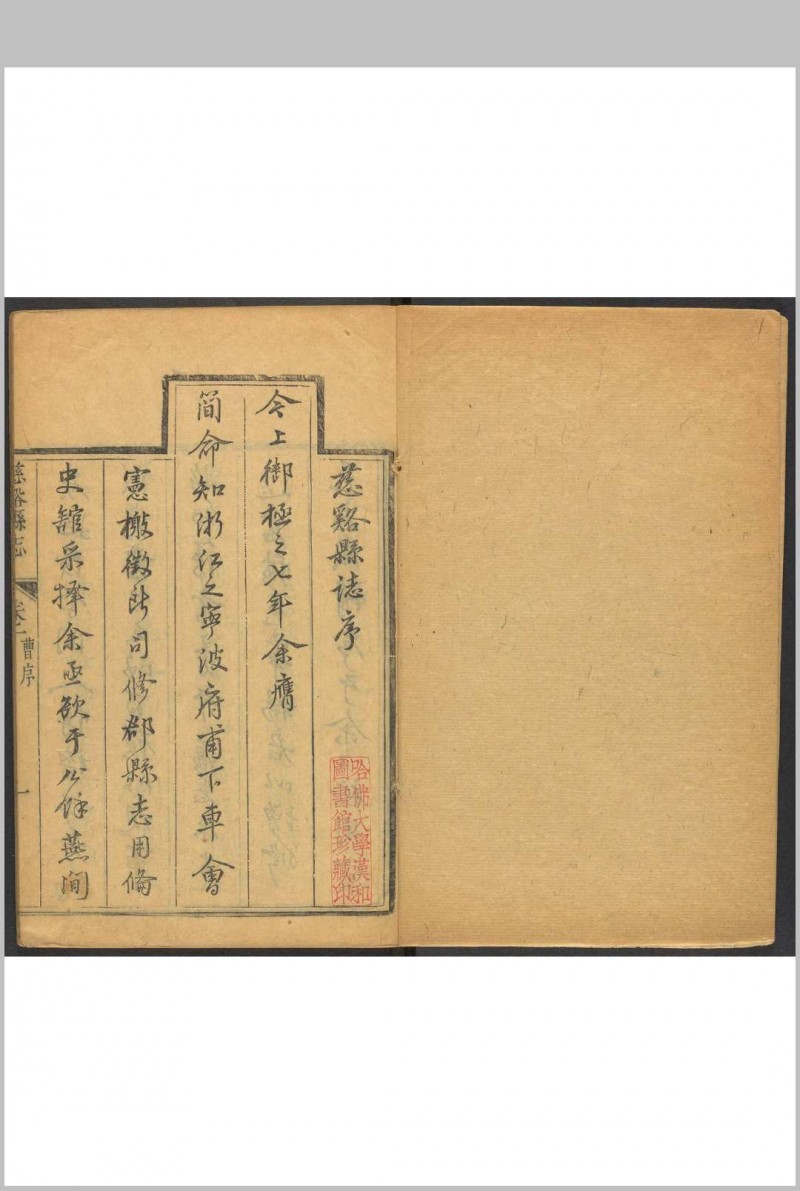 慈谿縣誌序
今上御極之七年余膺
簡命知浙江之寧波府甫下車會
憲檄徵所司修郡縣志用備
史舘采擇余亟欲于公餘燕間
慈谿縣志 卷一 曹序 一
哈佛大學漢和
圖書館珍藏印
1